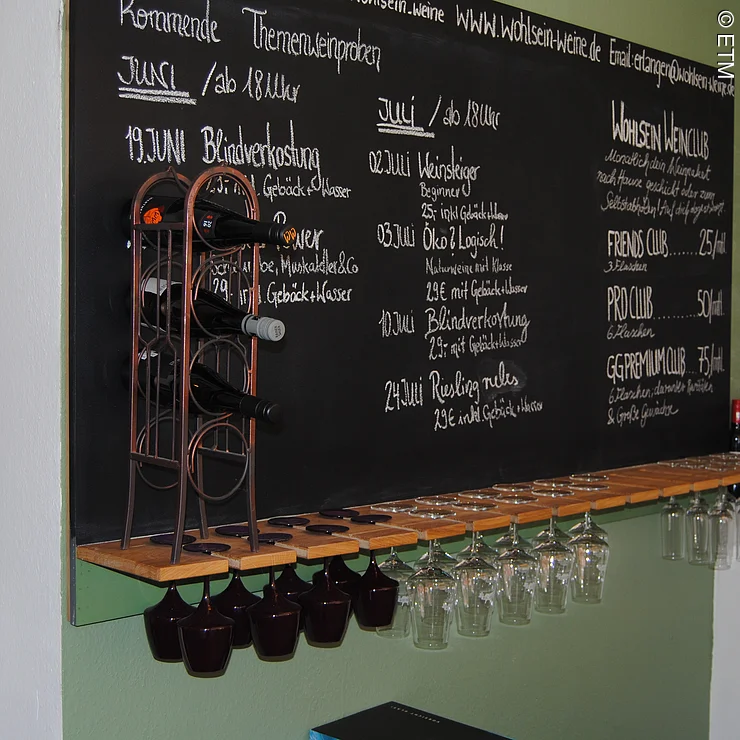 wohlsein-weine WWW.wohlsein-weine.de Email:erlangen@wohlsein-weine.de
Kommende Themenweinproben
JUNI /ab 18 Uhr
19.JUNI Blindverkostung
29,- inkl. Gebäck+Wasser
Power
Scheurebe, Muskateller&Co
29,- inkl. Gebäck+Wasser
JULI /ab 18 Uhr
02.JULI Weinsteiger
Beginner
25,- inkl Gebäck+Wasser
03.JULI Öko? Logisch!
Naturweine mit Klasse
29€ mit Gebäck+Wasser
10.JULI Blindverkostung
29,- mit Gebäck+Wasser
24.JULI Riesling rules
29€ inkl. Gebäck+Wasser
WOHLSEIN WEINCLUB
Monatlich dein Weinpaket
nach Hause geschickt oder zum
Selbstabholen!
FRIENDS CLUB.......25/mtl.
3 Flaschen
PRO CLUB..........50/mtl.
6 Flaschen
GG PREMIUM CLUB...75/mtl.
6 Flaschen, darunter Raritäten
& Große Gewächse
© ETM